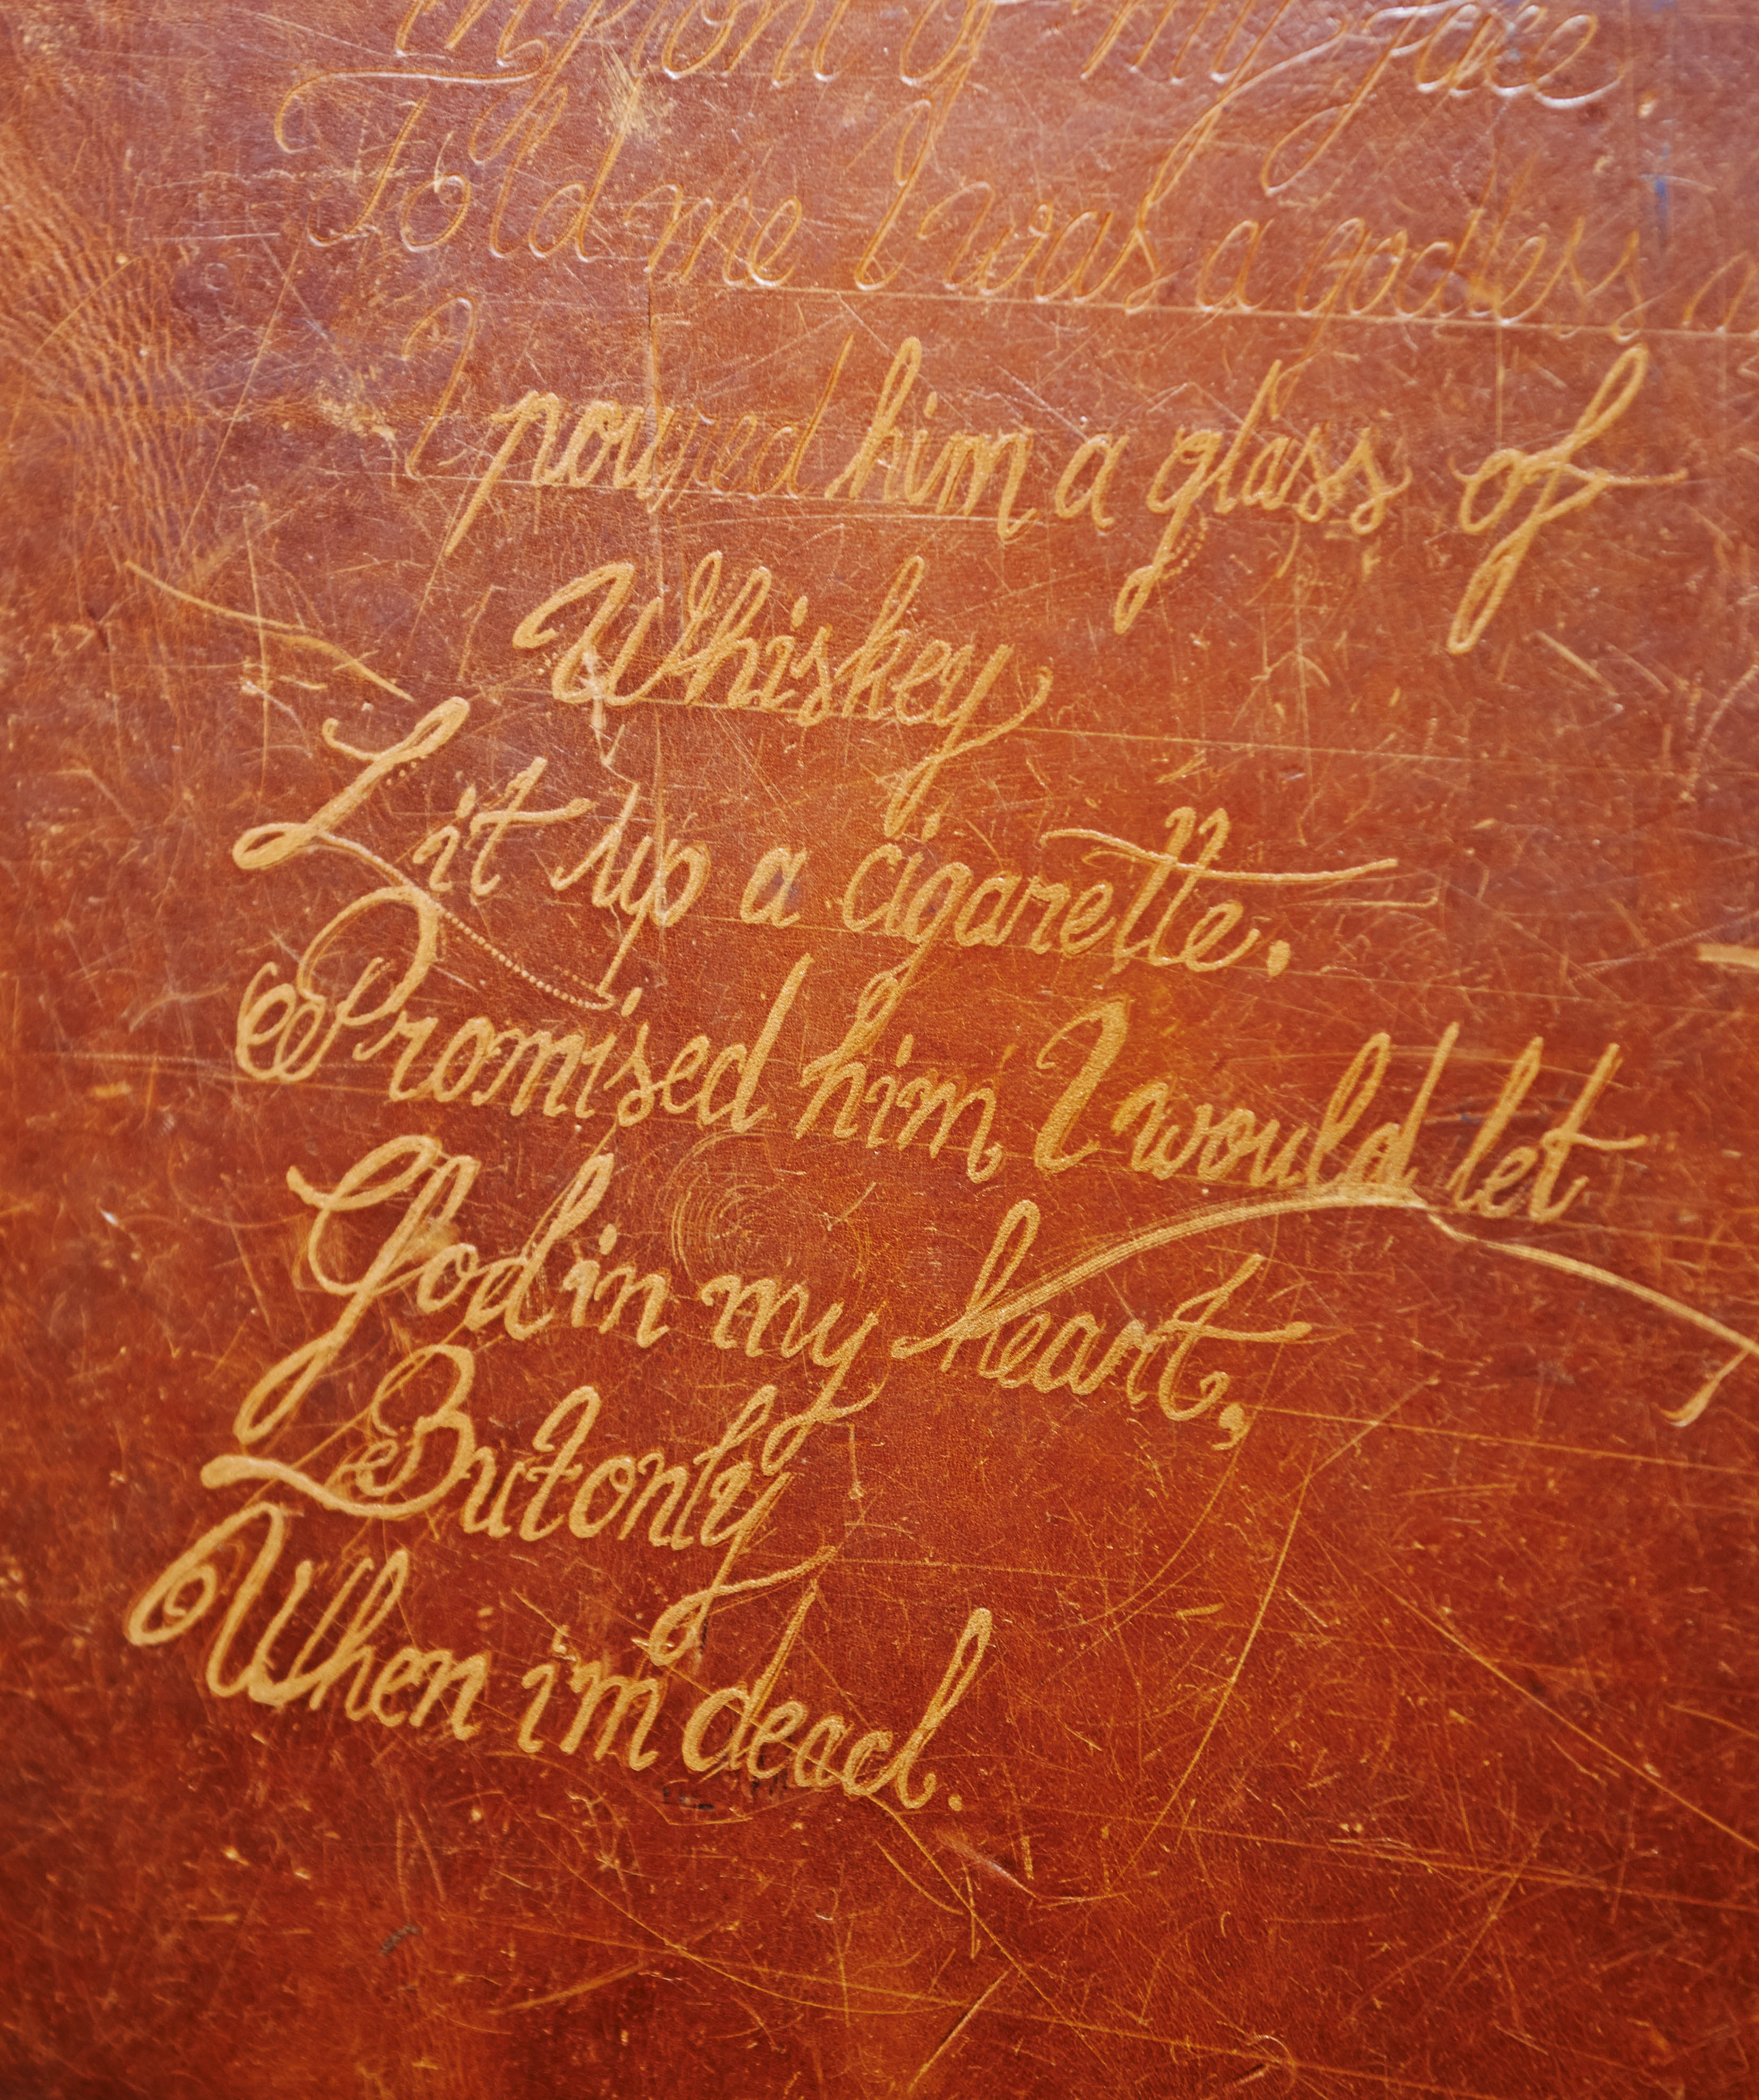 in front of my face.
Told me I was a godless
I poured him a glass of
Whiskey
Lit up a cigarette.
Promised him I would let
God in my heart,
But only
When i'm dead.